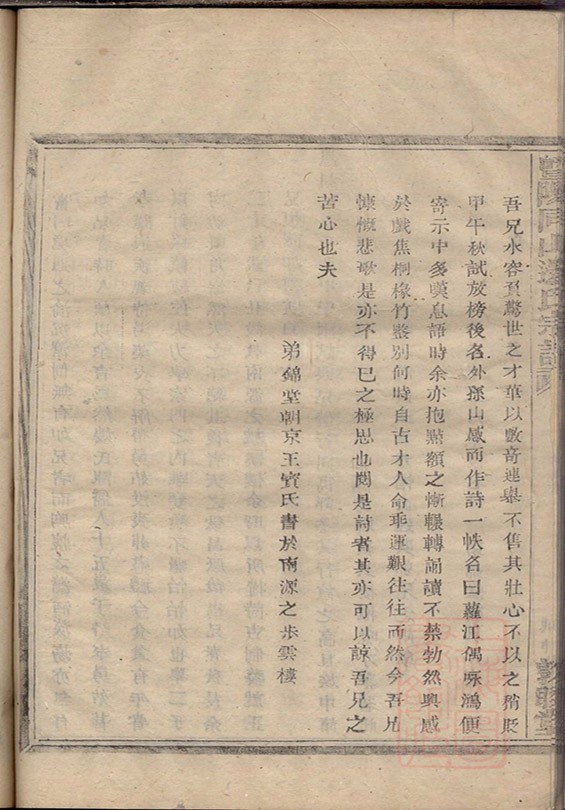 吾兄水容負驚世之才華以數奇連舉不售其壯心不以之稍貶
甲午秋試放榜後名外孫山感而作詩一帙名曰蘿江偶咏鴻便
寄示中多嘆息語時余亦抱點額之慚輾轉誦讀不禁勃然興感
於戲焦桐椽竹鑒別何時自古才人命乖運艱往往而然今吾兄
慷慨悲歌是亦不得已之極思也閱是詩者其亦可以諒吾兄之
苦心也夫
弟錦堂朝京王賓氏書於南源之步雲樓